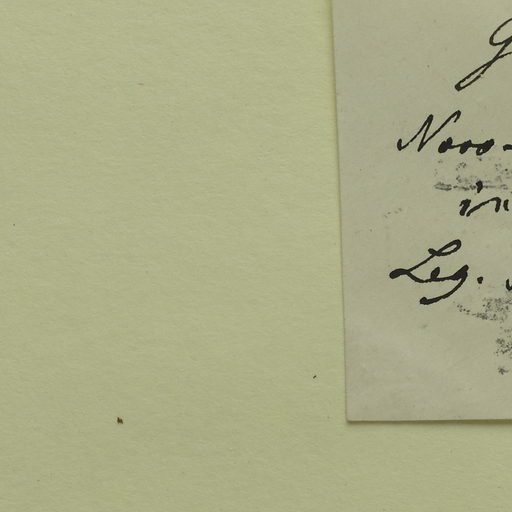 G
Novo-
in
Leg.